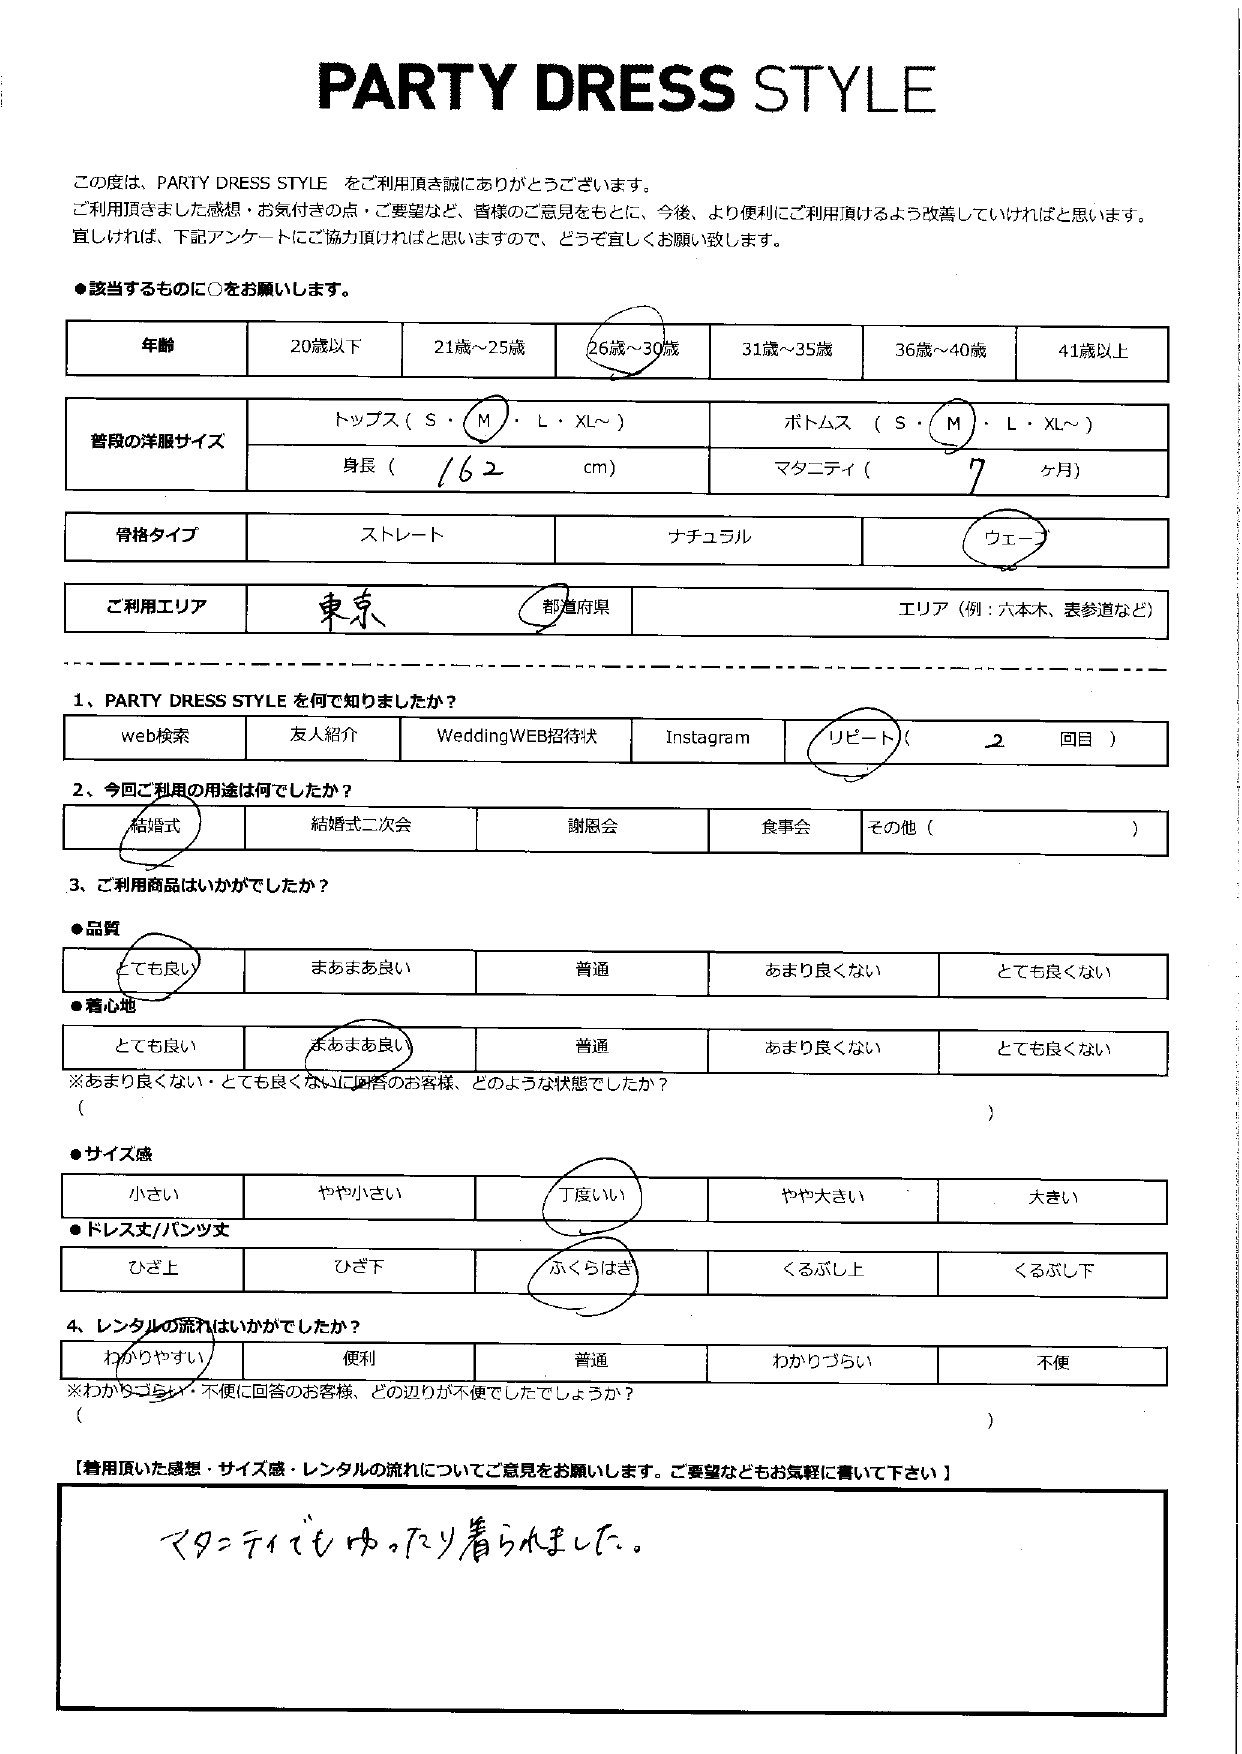 PARTY DRESS STYLE
この度は、PARTY DRESS STYLE をご利用頂き誠にありがとうございます。
ご利用頂きました感想・お気付きの点・ご要望など、皆様のご意見をもとに、今後、より便利にご利用頂けるよう改善していければと思います。
宜しければ、下記アンケートにご協力頂ければと思いますので、どうぞ宜しくお願い致します。
●該当するものに○をお願いします。
年齢 20歳以下 21歳～25歳 26歳～30歳 31歳～35歳 36歳～40歳 41歳以上
普段の洋服サイズ トップス ( S ・ M ・ L ・ XL～ ) ボトムス ( S ・ M ・ L ・ XL～ )
身長 ( 162 cm) マタニティ ( 7 ヶ月)
骨格タイプ ストレート ナチュラル ウェーブ
ご利用エリア 東京 都道府県 エリア（例：六本木、表参道など）
1、PARTY DRESS STYLE を何で知りましたか？
web検索 友人紹介 WeddingWEB招待状 Instagram リピート ( 2 回目 )
2、今回ご利用の用途は何でしたか？
結婚式 結婚式二次会 謝恩会 食事会 その他 ( )
3、ご利用商品はいかがでしたか？
●品質
とても良い まあまあ良い 普通 あまり良くない とても良くない
●着心地
とても良い まあまあ良い 普通 あまり良くない とても良くない
※あまり良くない・とても良くないに回答のお客様、どのような状態でしたか？
( )
●サイズ感
小さい やや小さい 丁度いい やや大きい 大きい
●ドレス丈/パンツ丈
ひざ上 ひざ下 ふくらはぎ くるぶし上 くるぶし下
4、レンタルの流れはいかがでしたか？
わかりやすい 便利 普通 わかりづらい 不便
※わかりづらい・不便に回答のお客様、どの辺りが不便でしたでしょうか？
( )
【着用頂いた感想・サイズ感・レンタルの流れについてご意見をお願いします。ご要望などもお気軽に書いて下さい 】
マタニティでもゆったり着られました。